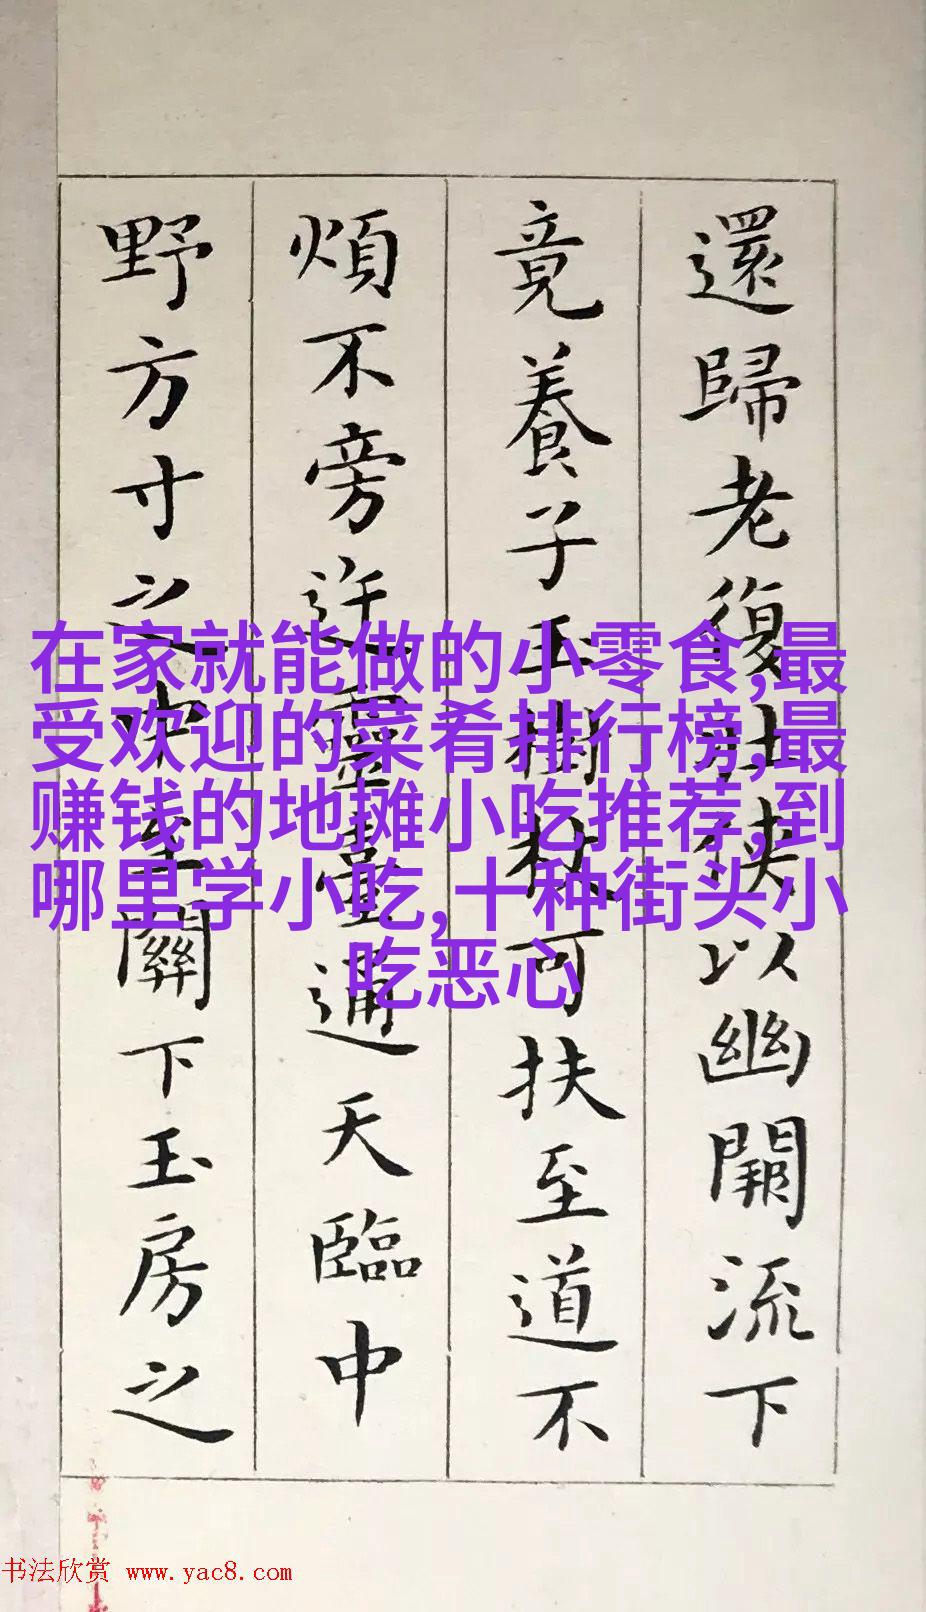 還歸老復壯俠以幽闕流下
竟養子玉樹杖可扶至道不
煩不旁迕靈臺通天臨中
野方寸之中至關下玉房之
在家就能做的小零食,最
受欢迎的菜肴排行榜,最
赚钱的地摊小吃推荐,到
哪里学小吃,十种街头小
吃恶心
书法欣赏 www.yac8.com